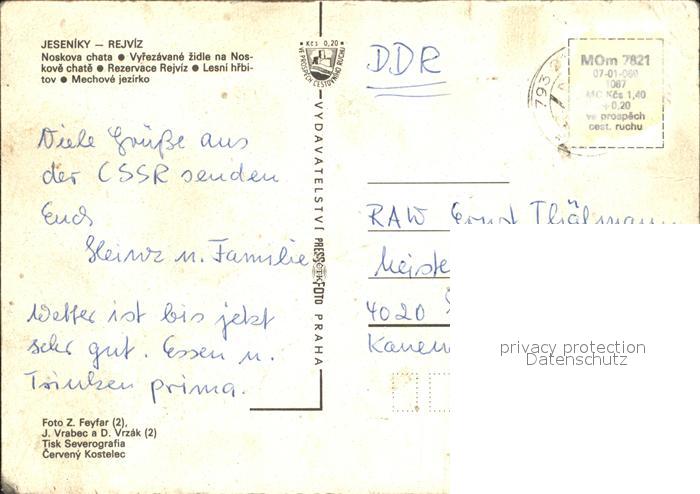 JESENÍKY — REJVÍZ
Noskova chata ● Vyřezávané židle na Nos-
kově chatě ● Rezervace Rejvíz ● Lesní hřbi-
tov ● Mechové jezírko
Viele Grüße aus
der CSSR senden
Euch
Heinz u. Familie
Wetter ist bis jetzt
sehr gut. Essen u.
Trinken prima.
Foto Z. Feyfar (2),
J. Vrabec a D. Vrzák (2)
Tisk Severografia
Červený Kostelec
Kčs 0,20
VE PROSPĚCH CESTOVNÍHO RUCHU
VYDAVATELSTVÍ PRESSFOTO PRAHA
DDR
793
MOm 7821
1087
MC Kčs 1,40
+0,20
ve prospěch
cest. ruchu
RAW Ernst Thälmann
Meiste
4020
Kanen
privacy protection
Datenschutz